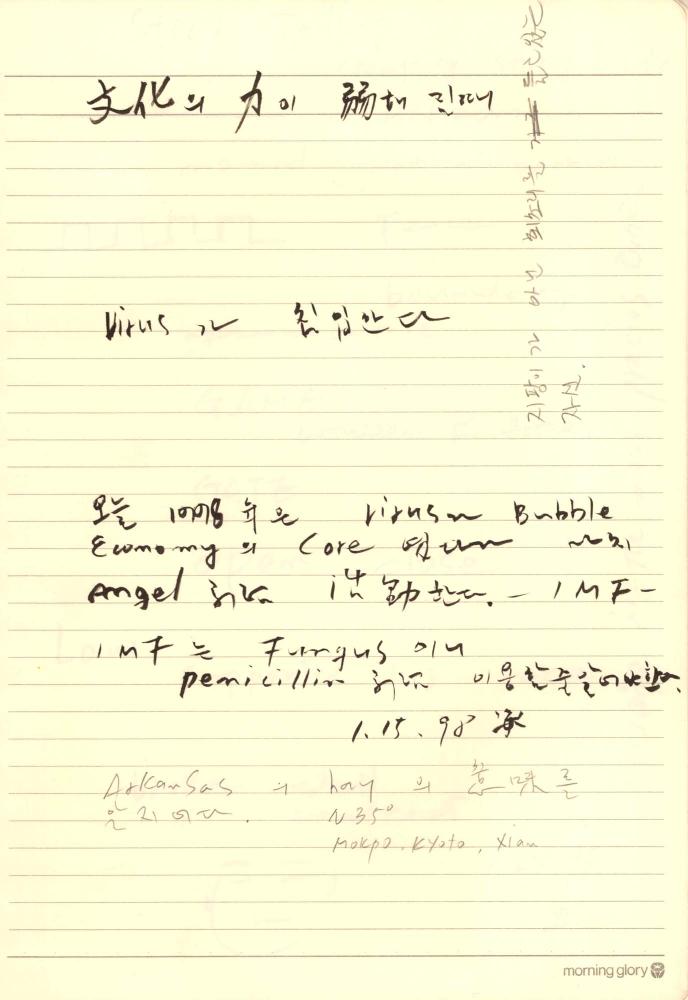 文化의 力이 弱해 질때
Virus가 침입한다
오늘 1998年은 Virus가 Bubble
Economy의 Core 였다가 마치
Angel 처럼 活動한다. - IMF -
IMF는 Fungus 이나
penicillin 처럼 이용할줄알아야한다.
1.15.98
Arkansas의 hay의 意味를
알지어다. N35°
Mokpo, Kyoto, Xian
지팡이가 아닌 회초리를
자신.
morning glory